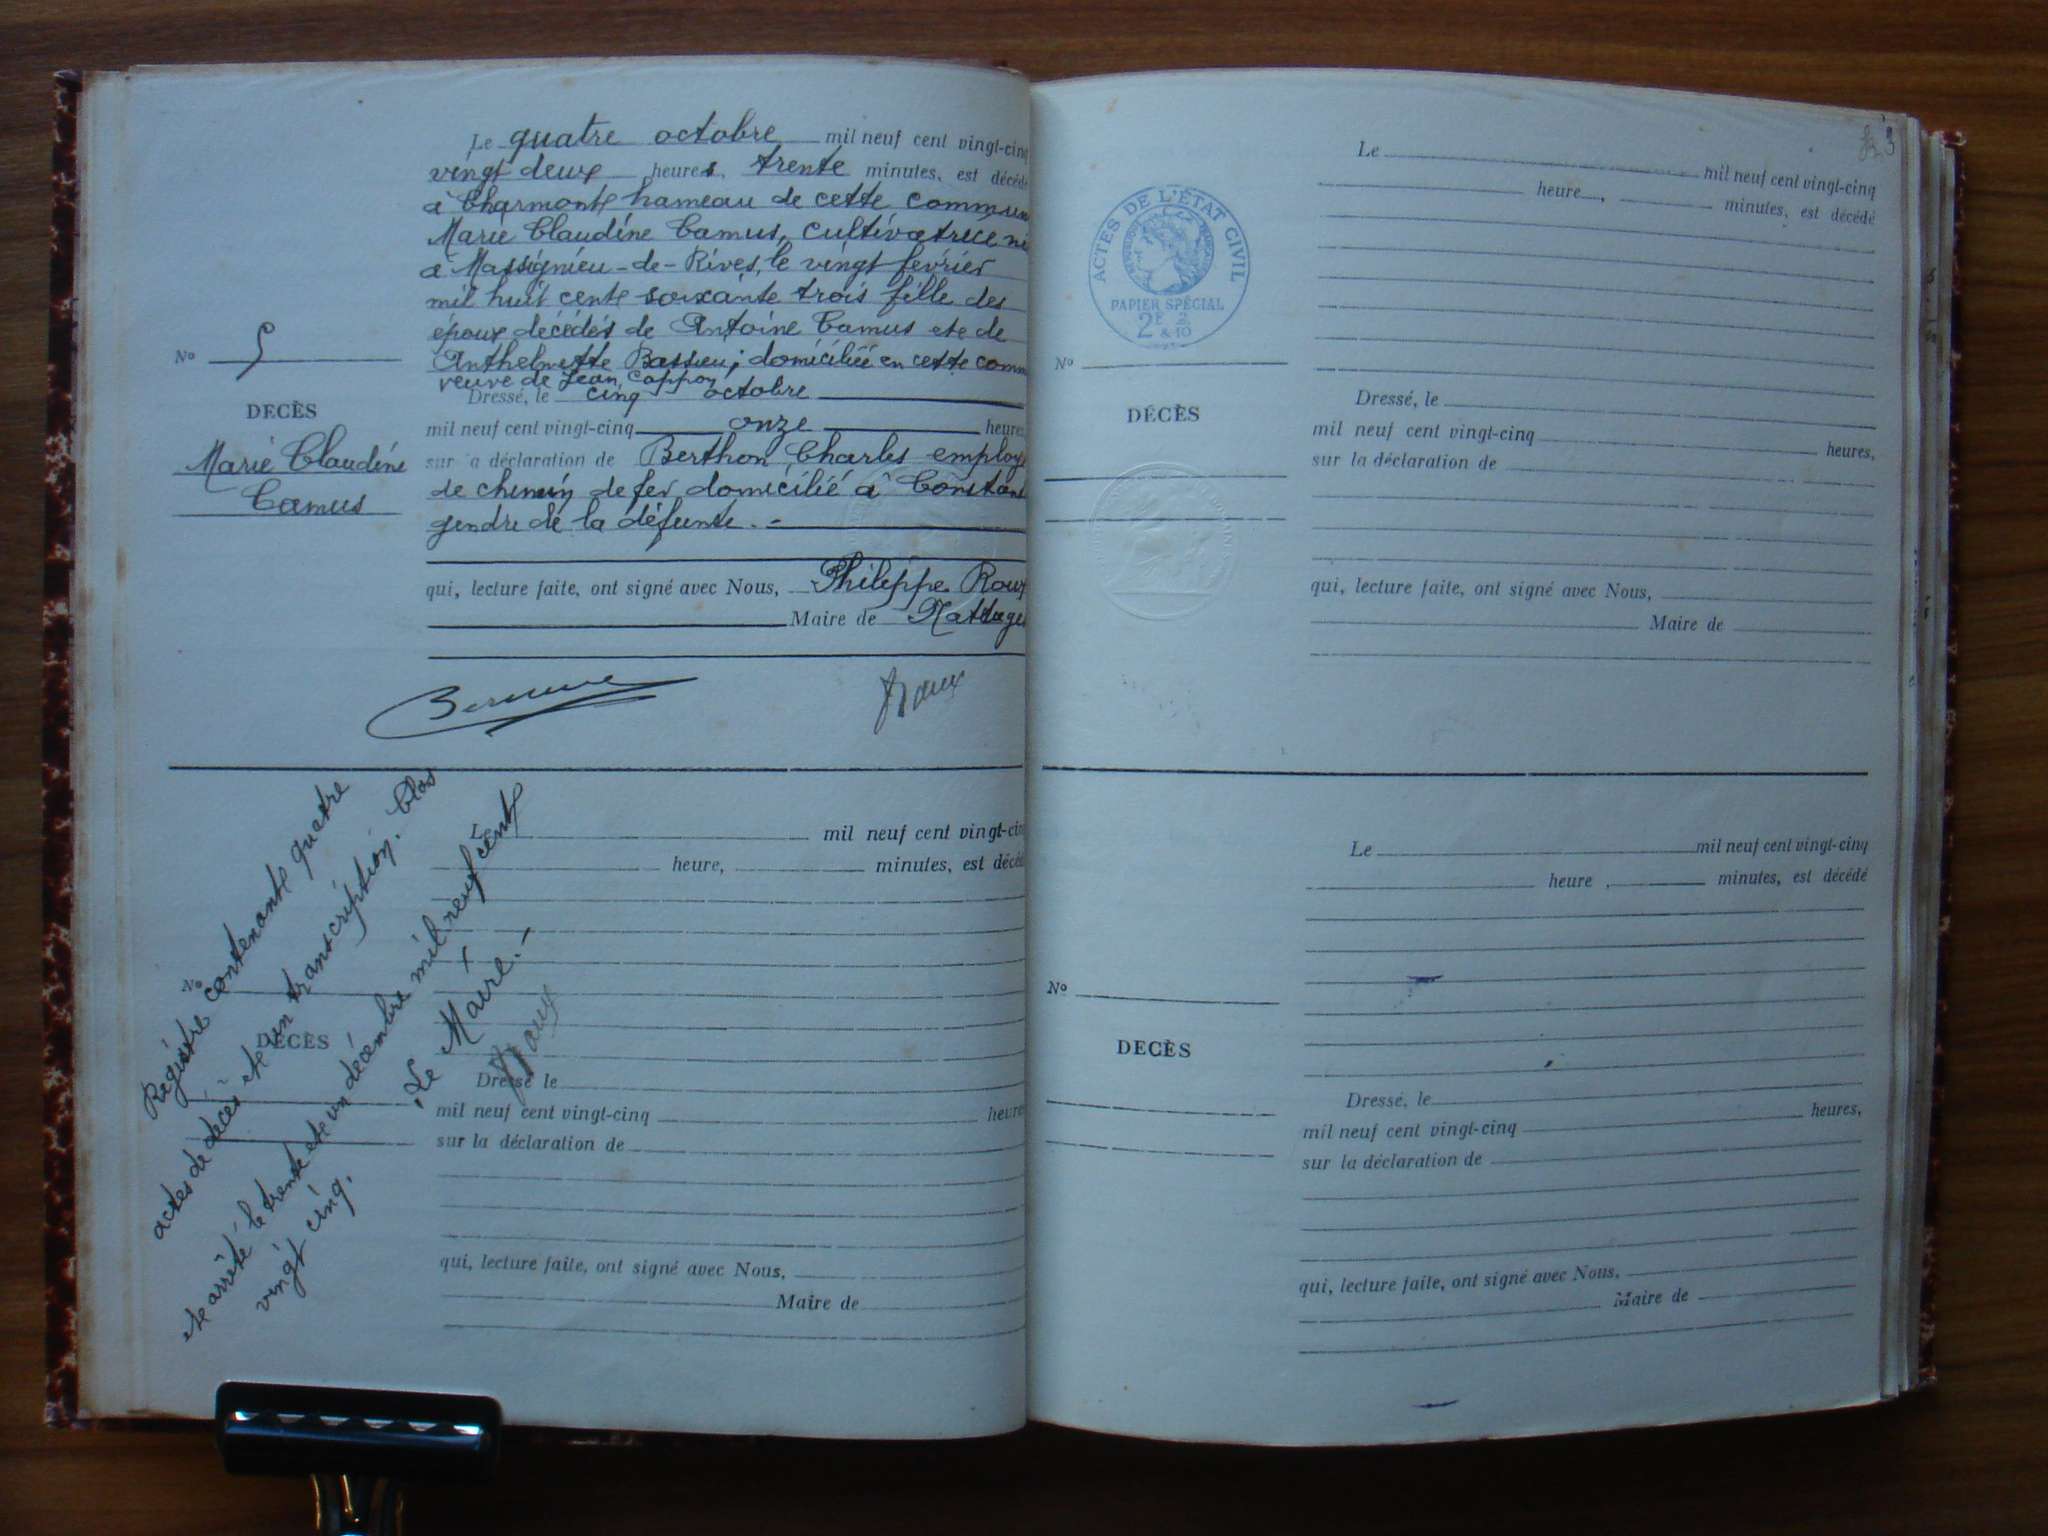 Le quatre octobre mil neuf cent vingt-cinq
vingt deux heures, trente minutes, est décédé
à Charmont hameau de cette commun
Marie Claudine Camus, cultivatrice né
à Massignieu-de-Rives, le vingt fevrier
mil huit cent soixante trois fille des
époux décédés de Antoine Camus et de
Anthelmette Bassieu; domiciliée en cette comm
veuve de Jean Cappoy
Dressé, le cinq octobre
mil neuf cent vingt-cinq onze heures
sur la déclaration de Berthon Charles employé
de chemin de fer, domicilié à
gendre de la défunte. -
qui, lecture faite, ont signé avec Nous, Philippe Roux
Maire de Nattages
Nº 5
DECÈS
Marie Claudine
Camus
Roux
Le mil neuf cent vingt-cinq
heure, minutes, est décédé
Nº
DECÈS
Dressé le
mil neuf cent vingt-cinq heures
sur la déclaration de
qui, lecture faite, ont signé avec Nous,
Maire de
Registre contenant quatre
actes de décès et un transcription. Clos
et arrêté le trente et un décembre mil neuf cent
vingt cinq.
Le Maire. -
Roux
3
Le mil neuf cent vingt-cinq
heure, minutes, est décédé
ACTES DE L'ÉTAT CIVIL
PAPIER SPÉCIAL
2E 2
& 10
Nº
DÉCÈS
Dressé, le
mil neuf cent vingt-cinq heures,
sur la déclaration de
qui, lecture faite, ont signé avec Nous,
Maire de
Le mil neuf cent vingt-cinq
heure, minutes, est décédé
Nº
DECÈS
Dressé, le
mil neuf cent vingt-cinq heures,
sur la déclaration de
qui, lecture faite, ont signé avec Nous,
Maire de